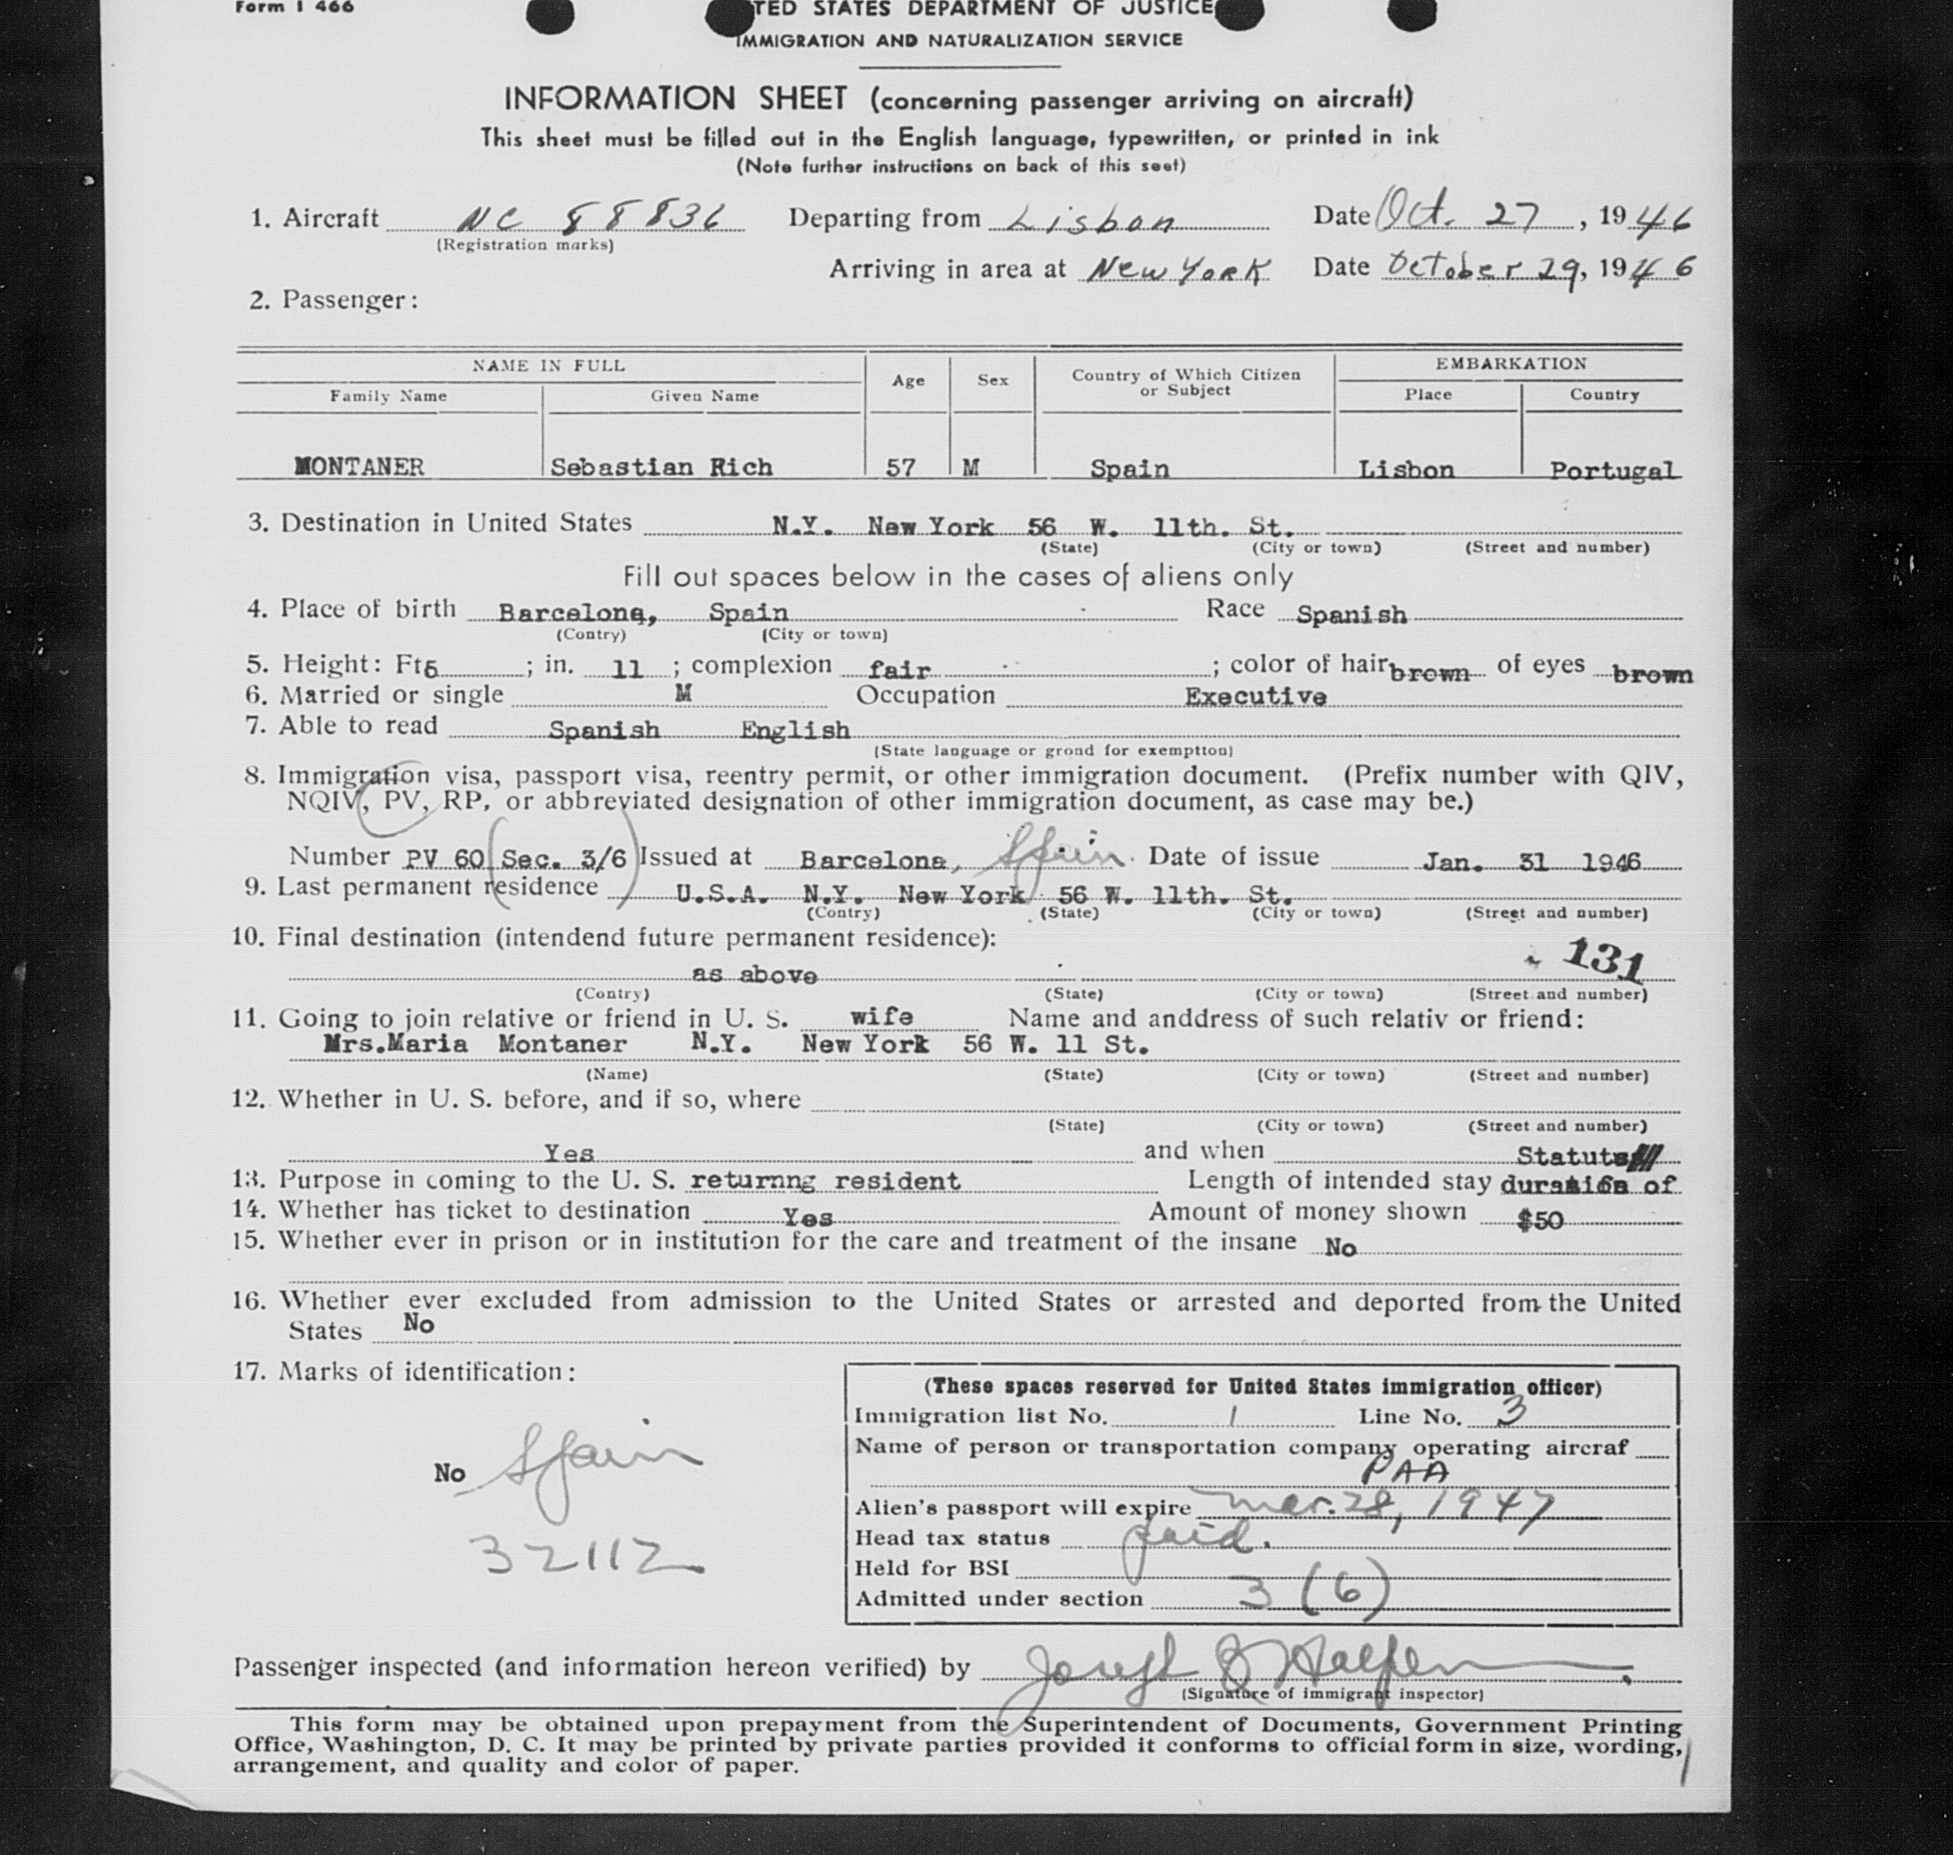 Form I 466
TED STATES DEPARTMENT OF JUSTICE
IMMIGRATION AND NATURALIZATION SERVICE
INFORMATION SHEET (concerning passenger arriving on aircraft)
This sheet must be filled out in the English language, typewritten, or printed in ink
(Note further instructions on back of this seet)
1. Aircraft NC 88836 Departing from Lisbon Date Oct. 27, 1946
(Registration marks)
Arriving in area at New York Date October 29, 1946
2. Passenger:
NAME IN FULL Age Sex Country of Which Citizen or Subject EMBARKATION
Family Name Given Name Place Country
MONTANER Sebastian Rich 57 M Spain Lisbon Portugal
3. Destination in United States N.Y. New York 56 W. 11th. St.
(State) (City or town) (Street and number)
Fill out spaces below in the cases of aliens only
4. Place of birth Barcelona, Spain Race Spanish
(Contry) (City or town)
5. Height: Ft 5 ; in. 11 ; complexion fair ; color of hair brown of eyes brown
6. Married or single M Occupation Executive
7. Able to read Spanish English
(State language or grond for exemptton)
8. Immigration visa, passport visa, reentry permit, or other immigration document. (Prefix number with QIV,
NQIV, PV, RP, or abbreviated designation of other immigration document, as case may be.)
Number PV 60 (Sec. 3/6) Issued at Barcelona, Spain. Date of issue Jan. 31 1946
9. Last permanent residence U.S.A. N.Y. New York 56 W. 11th. St.
(Contry) (State) (City or town) (Street and number)
10. Final destination (intendend future permanent residence):
131
as above
(Contry) (State) (City or town) (Street and number)
11. Going to join relative or friend in U. S. wife Name and anddress of such relativ or friend:
Mrs.Maria Montaner N.Y. New York 56 W. 11 St.
(Name) (State) (City or town) (Street and number)
12. Whether in U. S. before, and if so, where
(State) (City or town) (Street and number)
Yes and when Statuts
13. Purpose in coming to the U. S. returnng resident Length of intended stay duration of
14. Whether has ticket to destination Yes Amount of money shown $50
15. Whether ever in prison or in institution for the care and treatment of the insane No
16. Whether ever excluded from admission to the United States or arrested and deported from the United
States No
17. Marks of identification:
No Spain
32112
(These spaces reserved for United States immigration officer)
Immigration list No. 1 Line No. 3
Name of person or transportation company operating aircraf
PAA
Alien's passport will expire Mar. 28, 1947
Head tax status paid.
Held for BSI
Admitted under section 3 (6)
Passenger inspected (and information hereon verified) by Joseph
(Signature of immigrant inspector)
This form may be obtained upon prepayment from the Superintendent of Documents, Government Printing
Office, Washington, D. C. It may be printed by private parties provided it conforms to official form in size, wording,
arrangement, and quality and color of paper.